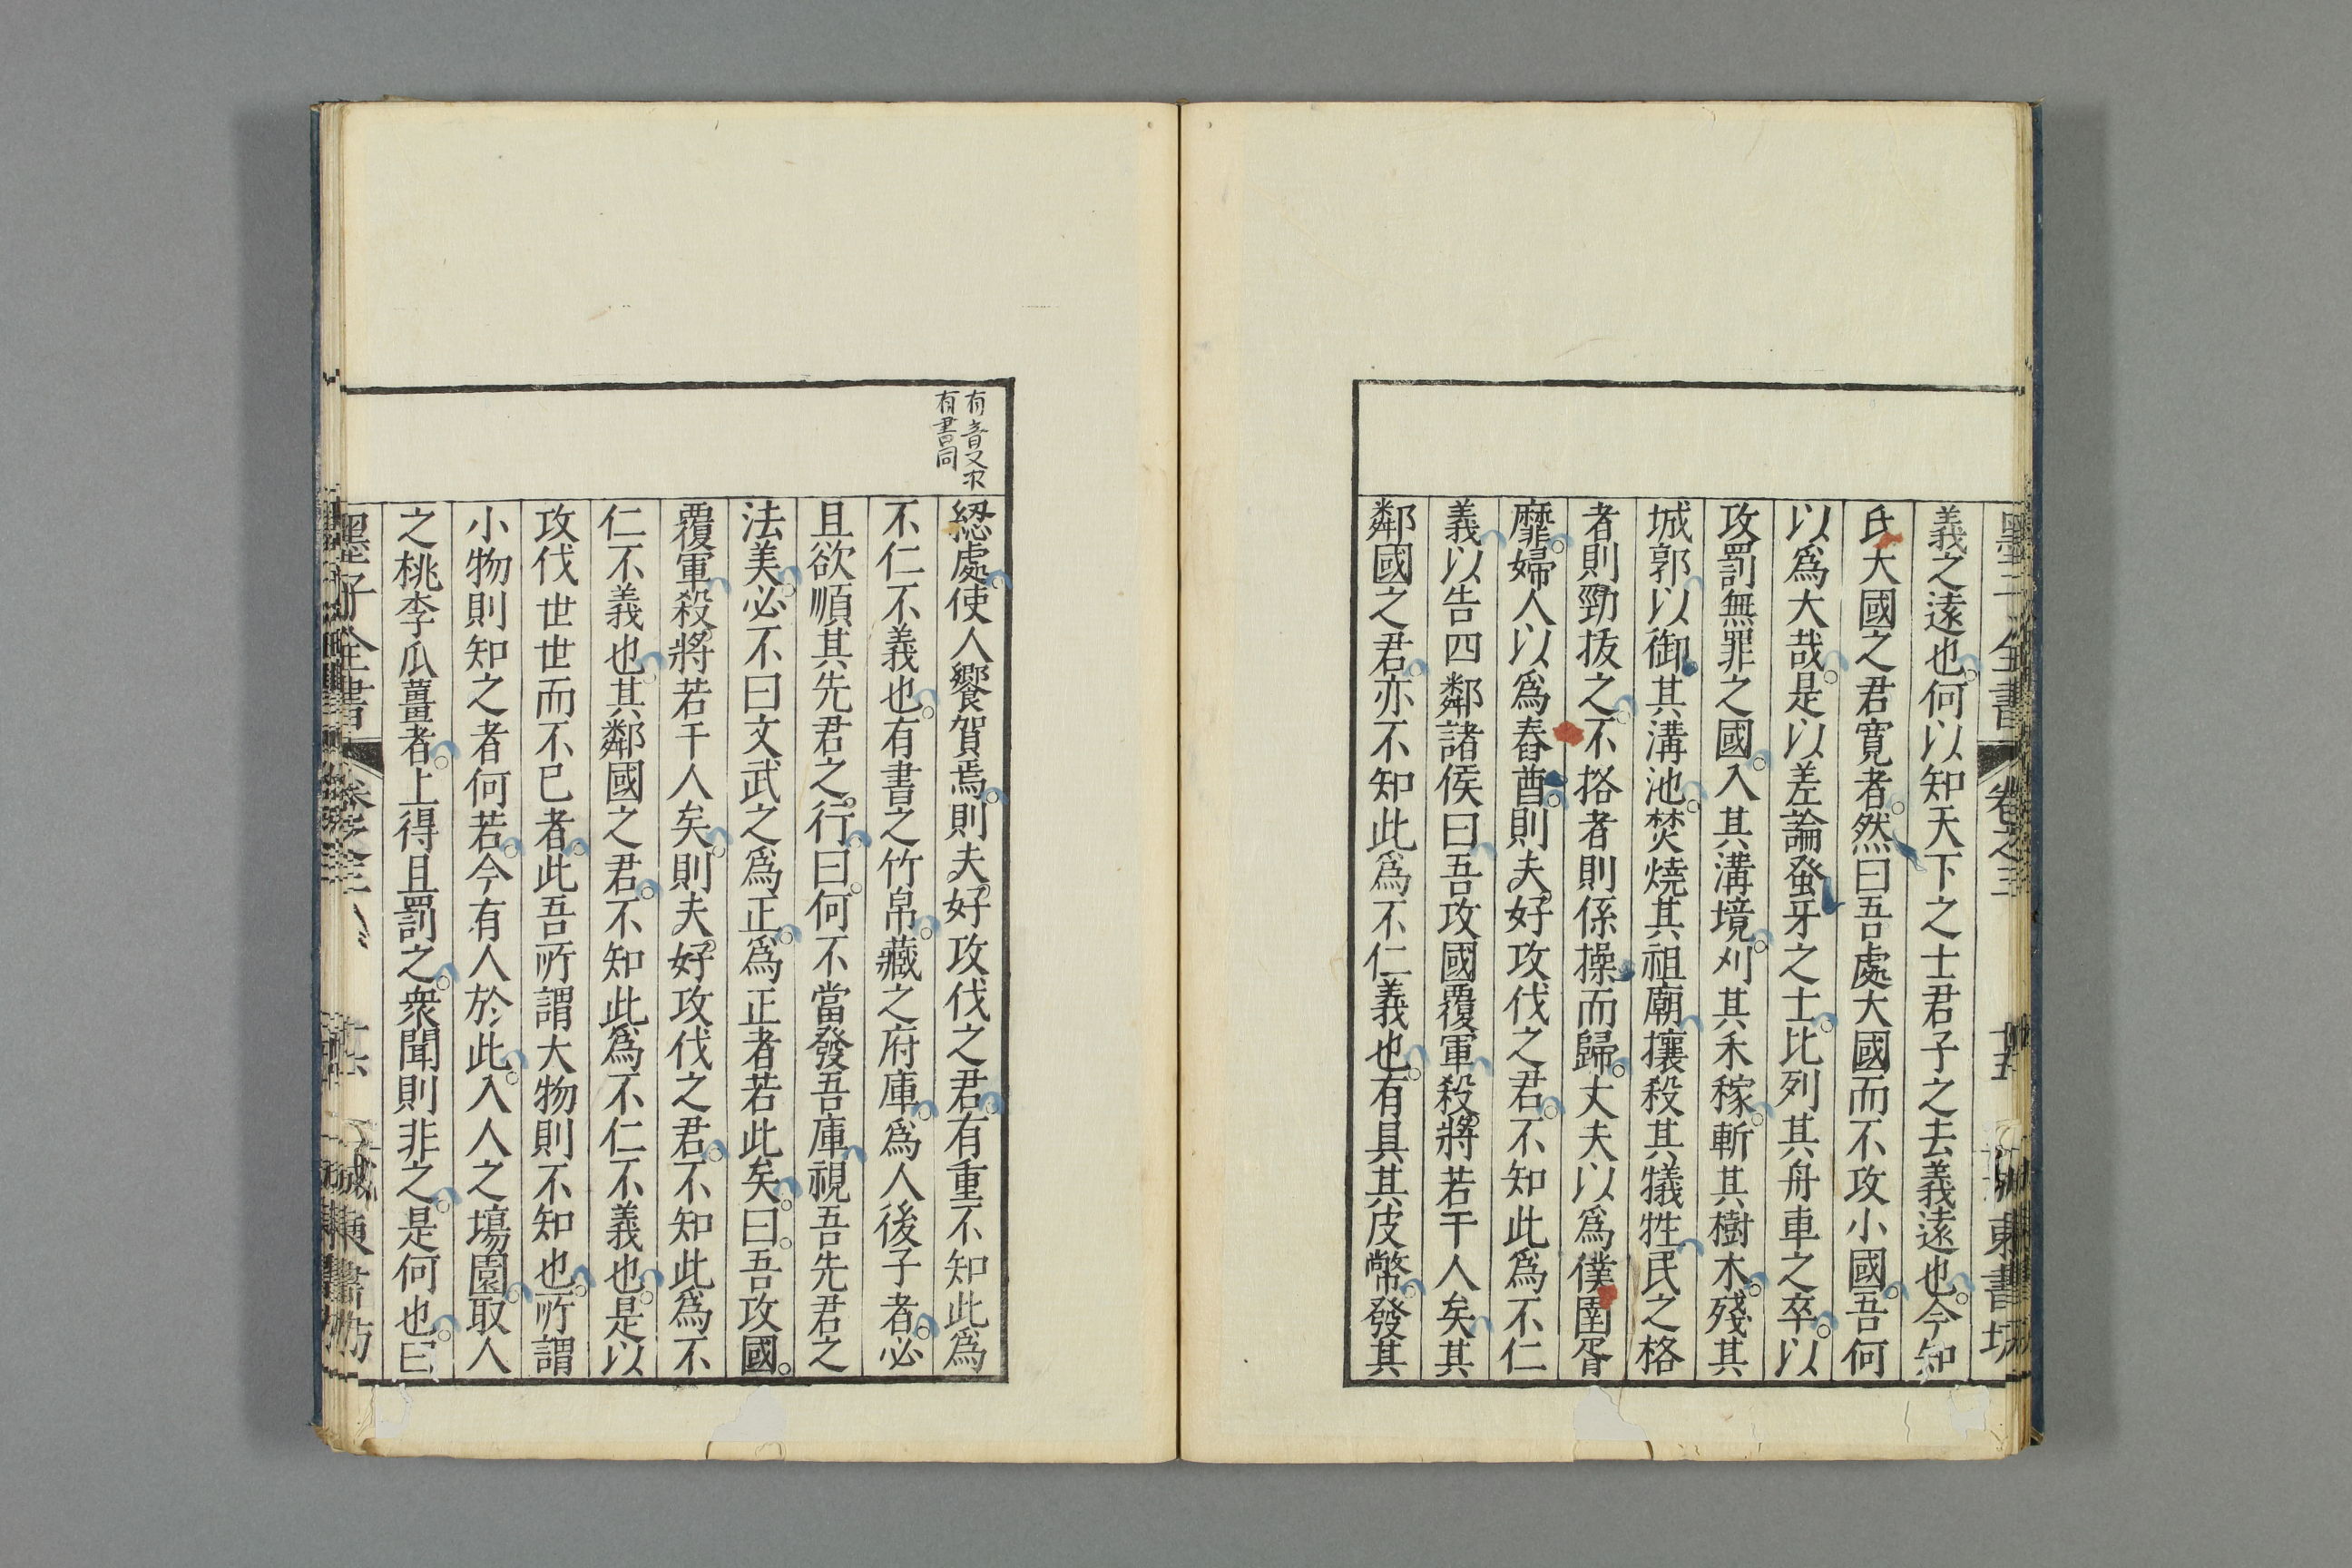 墨子全書 卷之三 十五 堀東書坊
義之遠也何以知天下之士君子之去義遠也今知
氏大國之君寬者然曰吾處大國而不攻小國吾何
以爲大哉是以差論蚤牙之士比列其舟車之卒以
攻罰無罪之國入其溝境刈其禾稼斬其樹木殘其
城郭以御其溝池焚燒其祖廟攘殺其犧牲民之格
者則勁拔之不挌者則係操而歸丈夫以爲僕圉胥
靡婦人以爲舂酋則夫好攻伐之君不知此爲不仁
義以告四鄰諸侯曰吾攻國覆軍殺將若干人矣其
鄰國之君亦不知此爲不仁義也有具其皮幣發其
有音又下
有書同
綛處使人饗賀焉則夫好攻伐之君有重不知此爲
不仁不義也有書之竹帛藏之府庫爲人後子者必
且欲順其先君之行曰何不當發吾庫視吾先君之
法美必不曰文武之爲正爲正者若此矣曰吾攻國
覆軍殺將若干人矣則夫好攻伐之君不知此爲不
仁不義也其鄰國之君不知此爲不仁不義也是以
攻伐世世而不已者此吾所謂大物則不知也所謂
小物則知之者何若今有人於此入人之塲園取人
之桃李瓜薑者上得且罰之衆聞則非之是何也曰
墨子全書